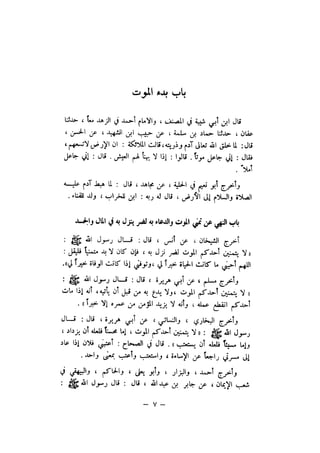 باب بدء الموت
قال ابن أبي شيبة في المصنف ، والإمام أحمد في الزهد معاً ، حدثنا
عفان ، حدثنا حماد بن سلمة ، عن حبيب ابن الشهيد ، عن الحسن ،
قال : لما خلق الله تعالى آدم وذريته، قالت الملائكة : إن الأرض لا تسعهم،
فقال : إني جاعل موتاً . قالوا : إذاً لا يهنأ لهم العيش . قال : إني جاعل
أملاً .
وأخرج أبو نعيم في الحلية ، عن مجاهد ، قال : لما هبط آدم عليــه
الصلاة والسلام إلى الأرض ، قال له ربه : ابن للخراب ، ولد للفناء .
باب النهي عن تمني الموت والدعاء به لضر ينزل به في المال والجسد
أخرج الشيخان ، عن أنس ، قال : قــال رسول الله ﷺ :
« لا يتمنين أحدكم الموت لضر نزل به ، فإن كان لا بد متمنياً فليقل :
اللهم أحيني ما كانت الحياة خيراً لي ، وتوفني إذا كانت الوفاة خيراً لي».
وأخرج مسلم ، عن أبي هريرة ، قال : قــال رسول الله ﷺ :
« لا يتمنين أحدكم الموت، ولا يدع به من قبل أن يأتيه، أنه إذا مات
أحدكم انقطع عمله ، وأنه لا يزيد المؤمن من عمره إلا خيراً » .
وأخرج البخاري ، والنسائي ، عن أبي هريرة ، قال : قــال
رسول الله ﷺ : « لا يتمنين أحدكم الموت ، إما محسناً فلعله أن يزداد ،
وإما مسيئاً فلعله أن يستعتب » . قال في الصحاح : أعتبني فلان إذا عاد
إلى مسرتي راجعاً عن الإساءة ، واستعتب وأعتب بمعنى واحد .
وأخرج أحمد ، والبزار ، وأبو يعلى ، والحاكم ، والبيهقي في
شعب الإيمان ، عن جابر بن عبد الله ، قال : قال رسول الله ﷺ :
– ٧ –